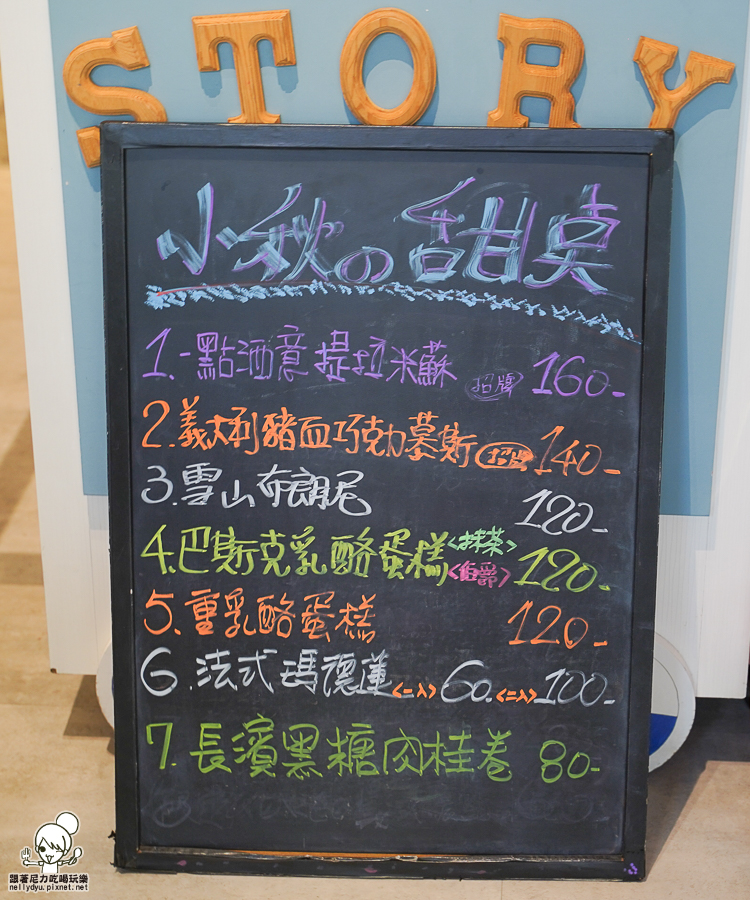 STORY
小秋の甜點
1.一點酒意提拉米蘇 招牌 160-
2.義大利豬血巧克力慕斯 招牌 140-
3.雪山布朗尼 120-
4.巴斯克乳酪蛋糕<抹茶><伯爵> 120-
5.重乳酪蛋糕 120-
6.法式瑪德蓮<一入>60.<二入>100-
7.長濱黑糖肉桂卷 80-
跟著尼力吃喝玩樂
nellydyu.pixnet.net